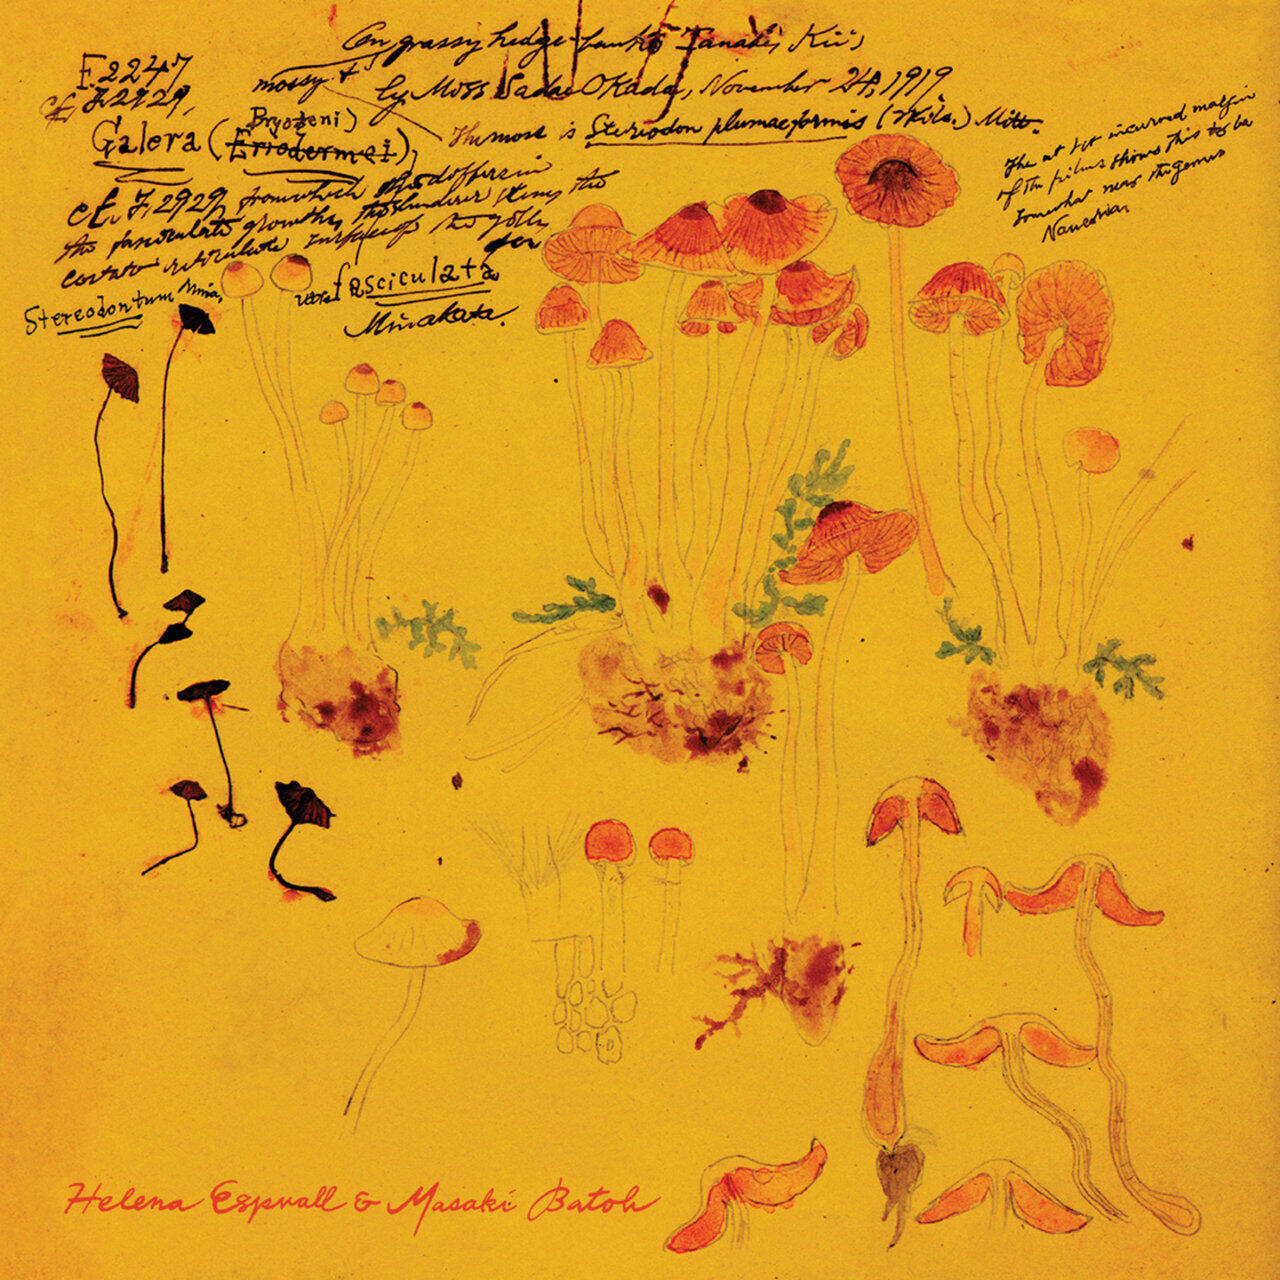 On grassy hedge-banks Tanabe, Kii,
F.2247
mossy &
cf. F.2929,
by Miss Sadae Okada, November 24, 1919
Galera (Bryogeni)
Eriodermei),
The moss is Stereodon plumaeformis (Wils.) Mitt.
The at 1st incurved margin
of the pileus shows this to be
somewhat near the genus
Naucoria
cf. F.2929, from which this differs in
the fasciculate growth, the slenderer stems the
costato-reticulate surface of the
Stereodontum
var. fasciculata
Minakata.
Helena Espvall & Masaki Batoh